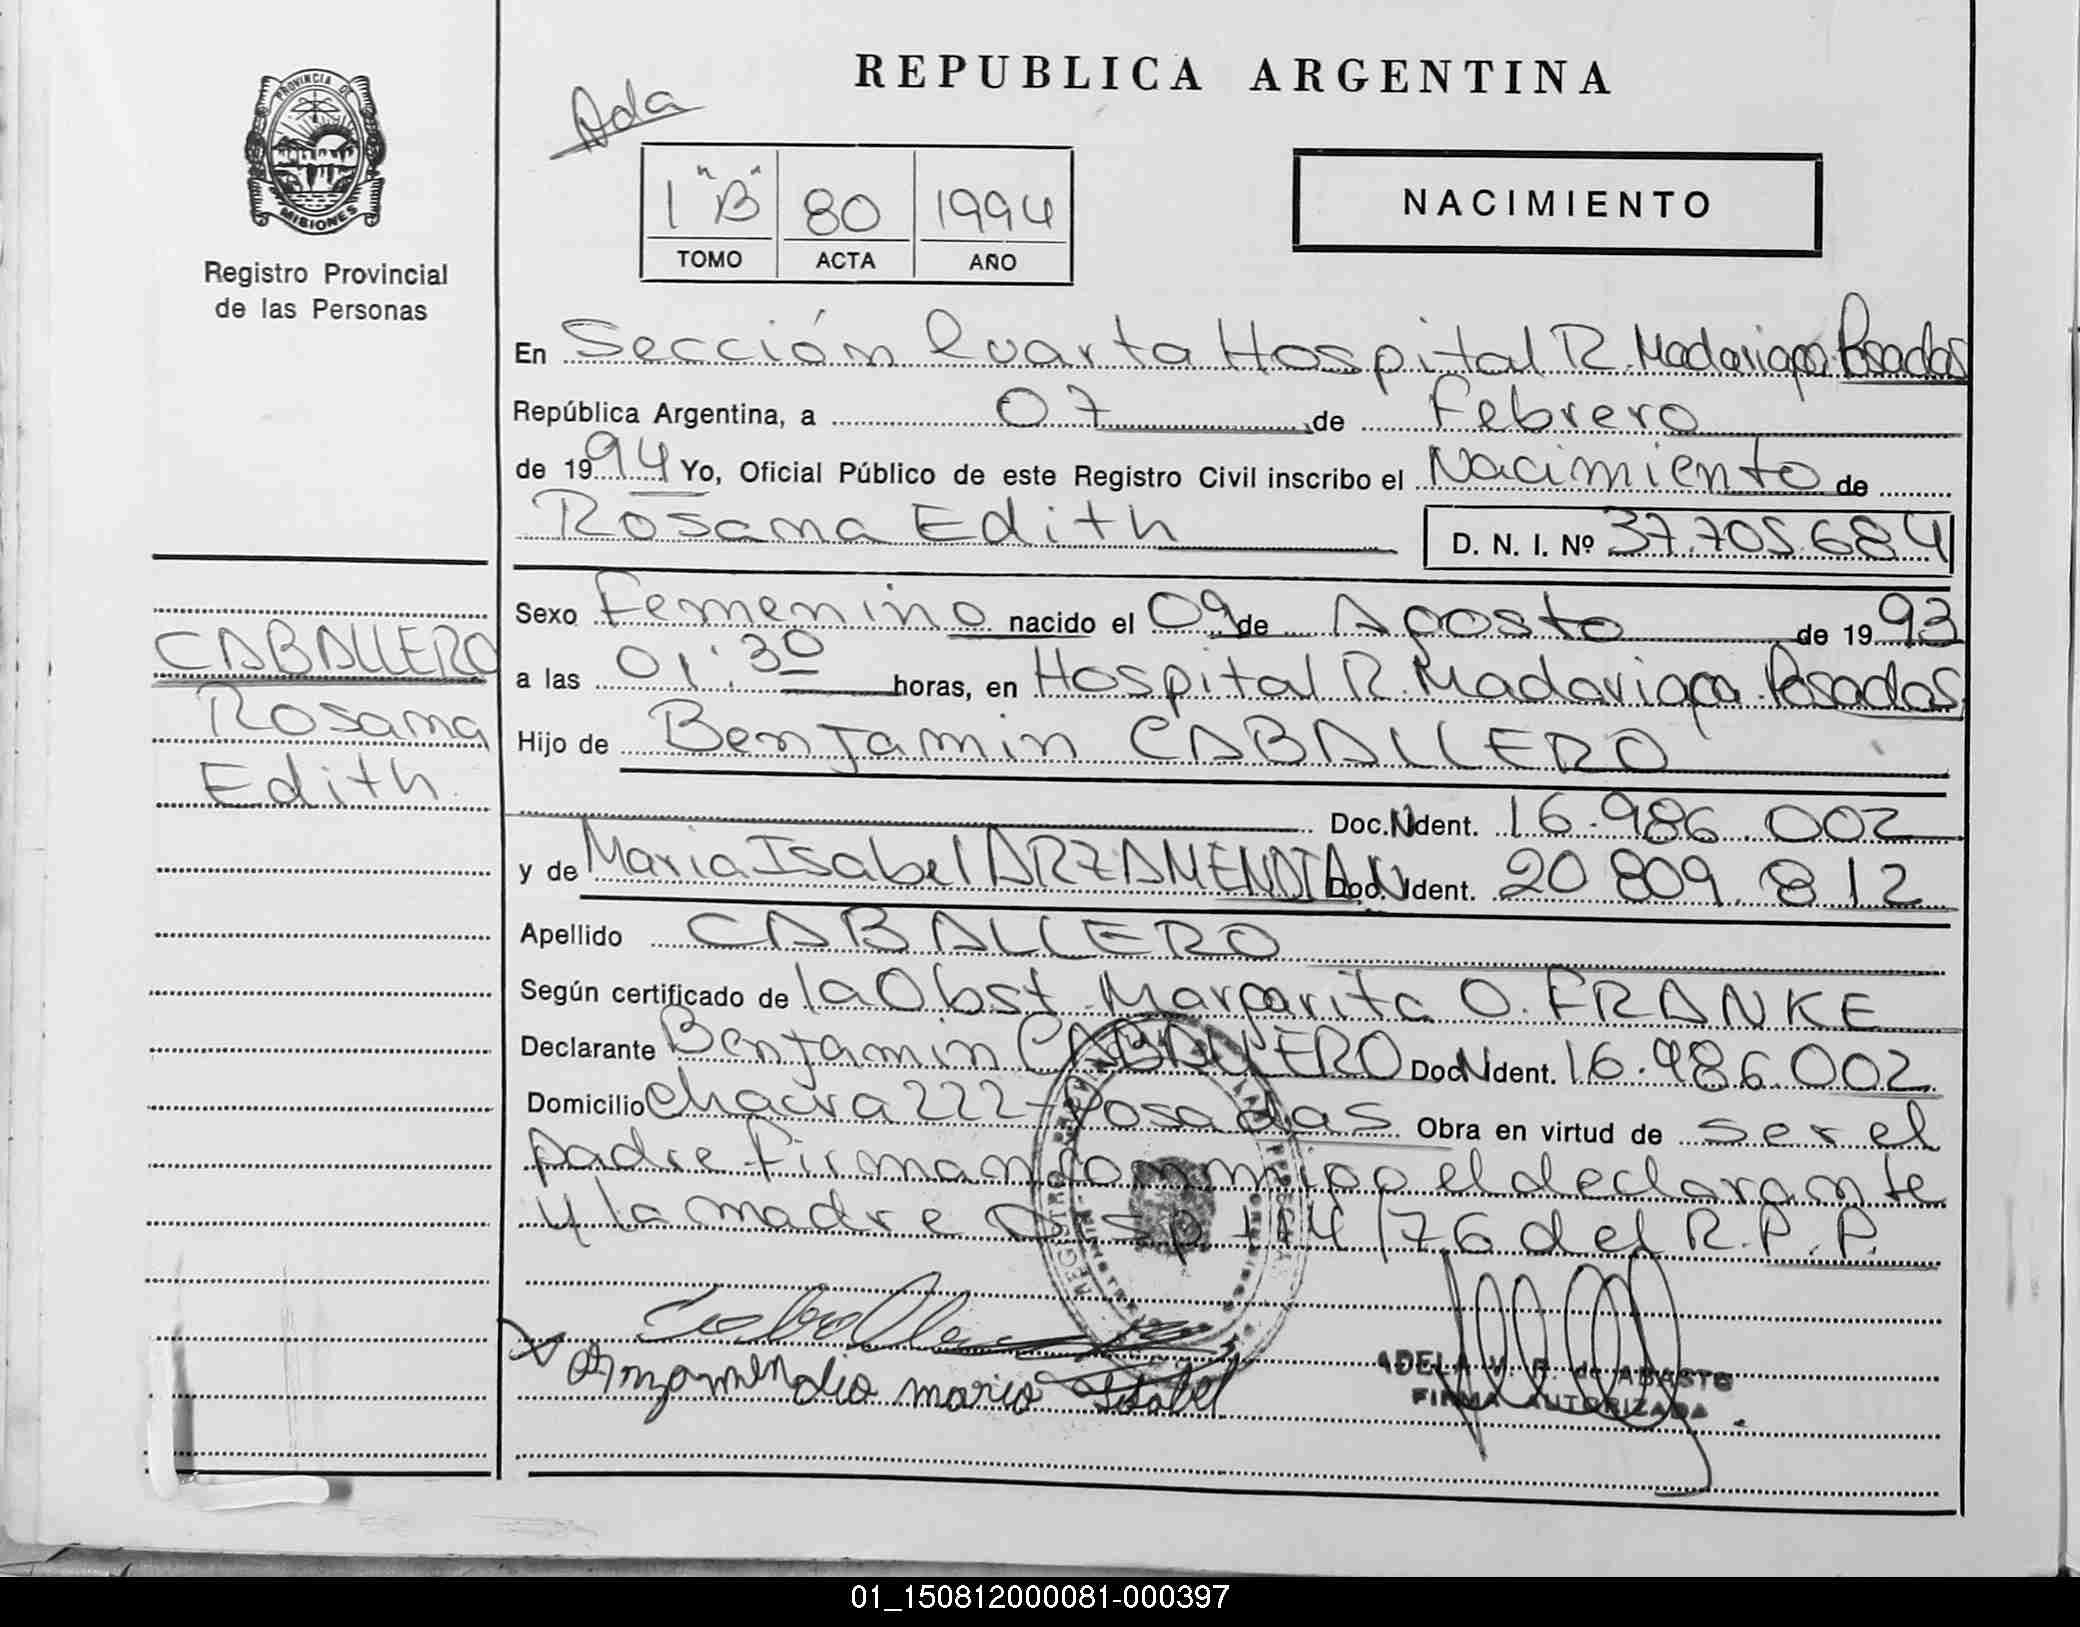 PROVINCIA DE
MISIONES
Registro Provincial
de las Personas
CABALLERO
Rosana
Edith
REPUBLICA ARGENTINA
Ada
1 "B" 80 1994
TOMO ACTA AÑO
NACIMIENTO
En Sección Cuarta Hospital R. Madariaga Posadas
República Argentina, a 07 de Febrero
de 1994 Yo, Oficial Público de este Registro Civil inscribo el Nacimiento de
Rosana Edith D. N. I. Nº 37.705.684
Sexo Femenino nacido el 09 de Agosto de 1993
a las 01:30 horas, en Hospital R. Madariaga Posadas
Hijo de Benjamin CABALLERO
Doc.N Ident. 16.986.002
y de Maria Isabel ARZAMENDIA Doc.N Ident. 20.809.812
Apellido CABALLERO
Según certificado de la Obst. Margarita O. FRANKE
Declarante Benjamin CABALLERO Doc N Ident. 16.986.002
Domicilio Chacra 222 - Posadas Obra en virtud de ser el
padre firman conmigo el declarante
y la madre Disp 114/76 del R.P.P.
Arzamendia maria Isabel
ADELA de ABASTO
FIRMA AUTORIZADA
01_150812000081-000397